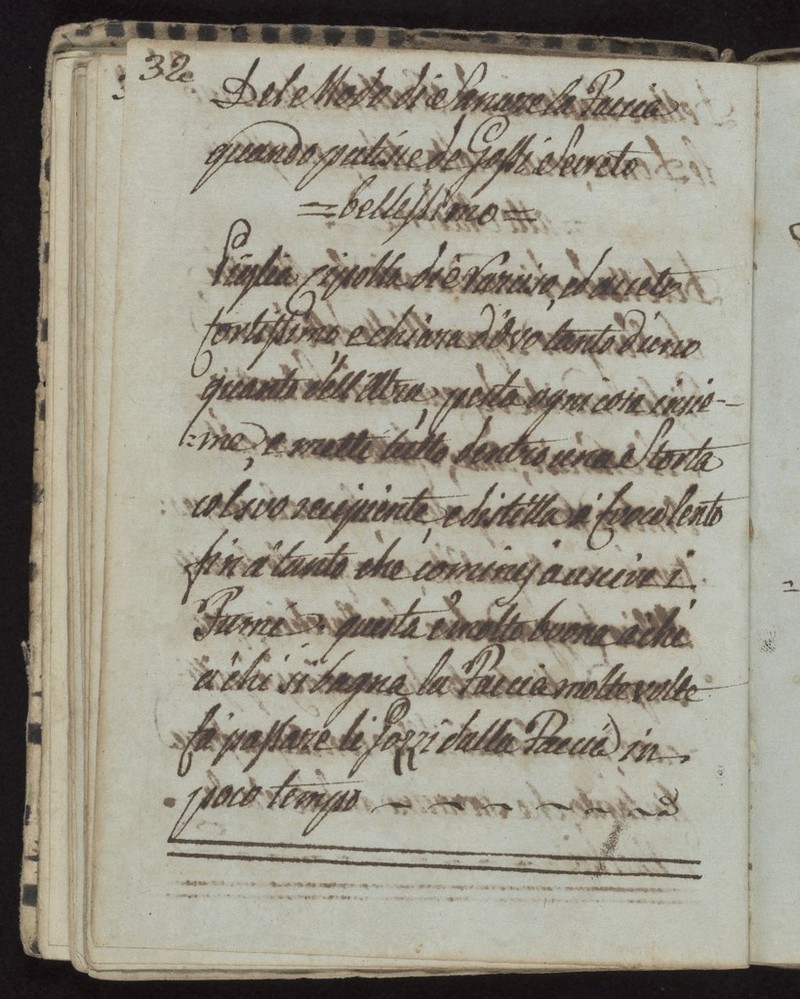 32
Del Modo di Sanare la Faccia
quando patisce de Gossi Secreto
= bellissimo =
Piglia cipolla di Narciso, ed aceto
fortissimo e chiara d'Ovo tanto d'uno
quanto dell'Altra, pesta ogni cosa insie-
=me, e metti tutto dentro una Storta
col suo recipiente, e distilla á fuoco lento
fin á tanto che cominci á uscire i
Fumi questa é molto buona a chi
á chi si bagna la Faccia molte volte
fá passare li Gozzi dalla Faccia in
poco tempo